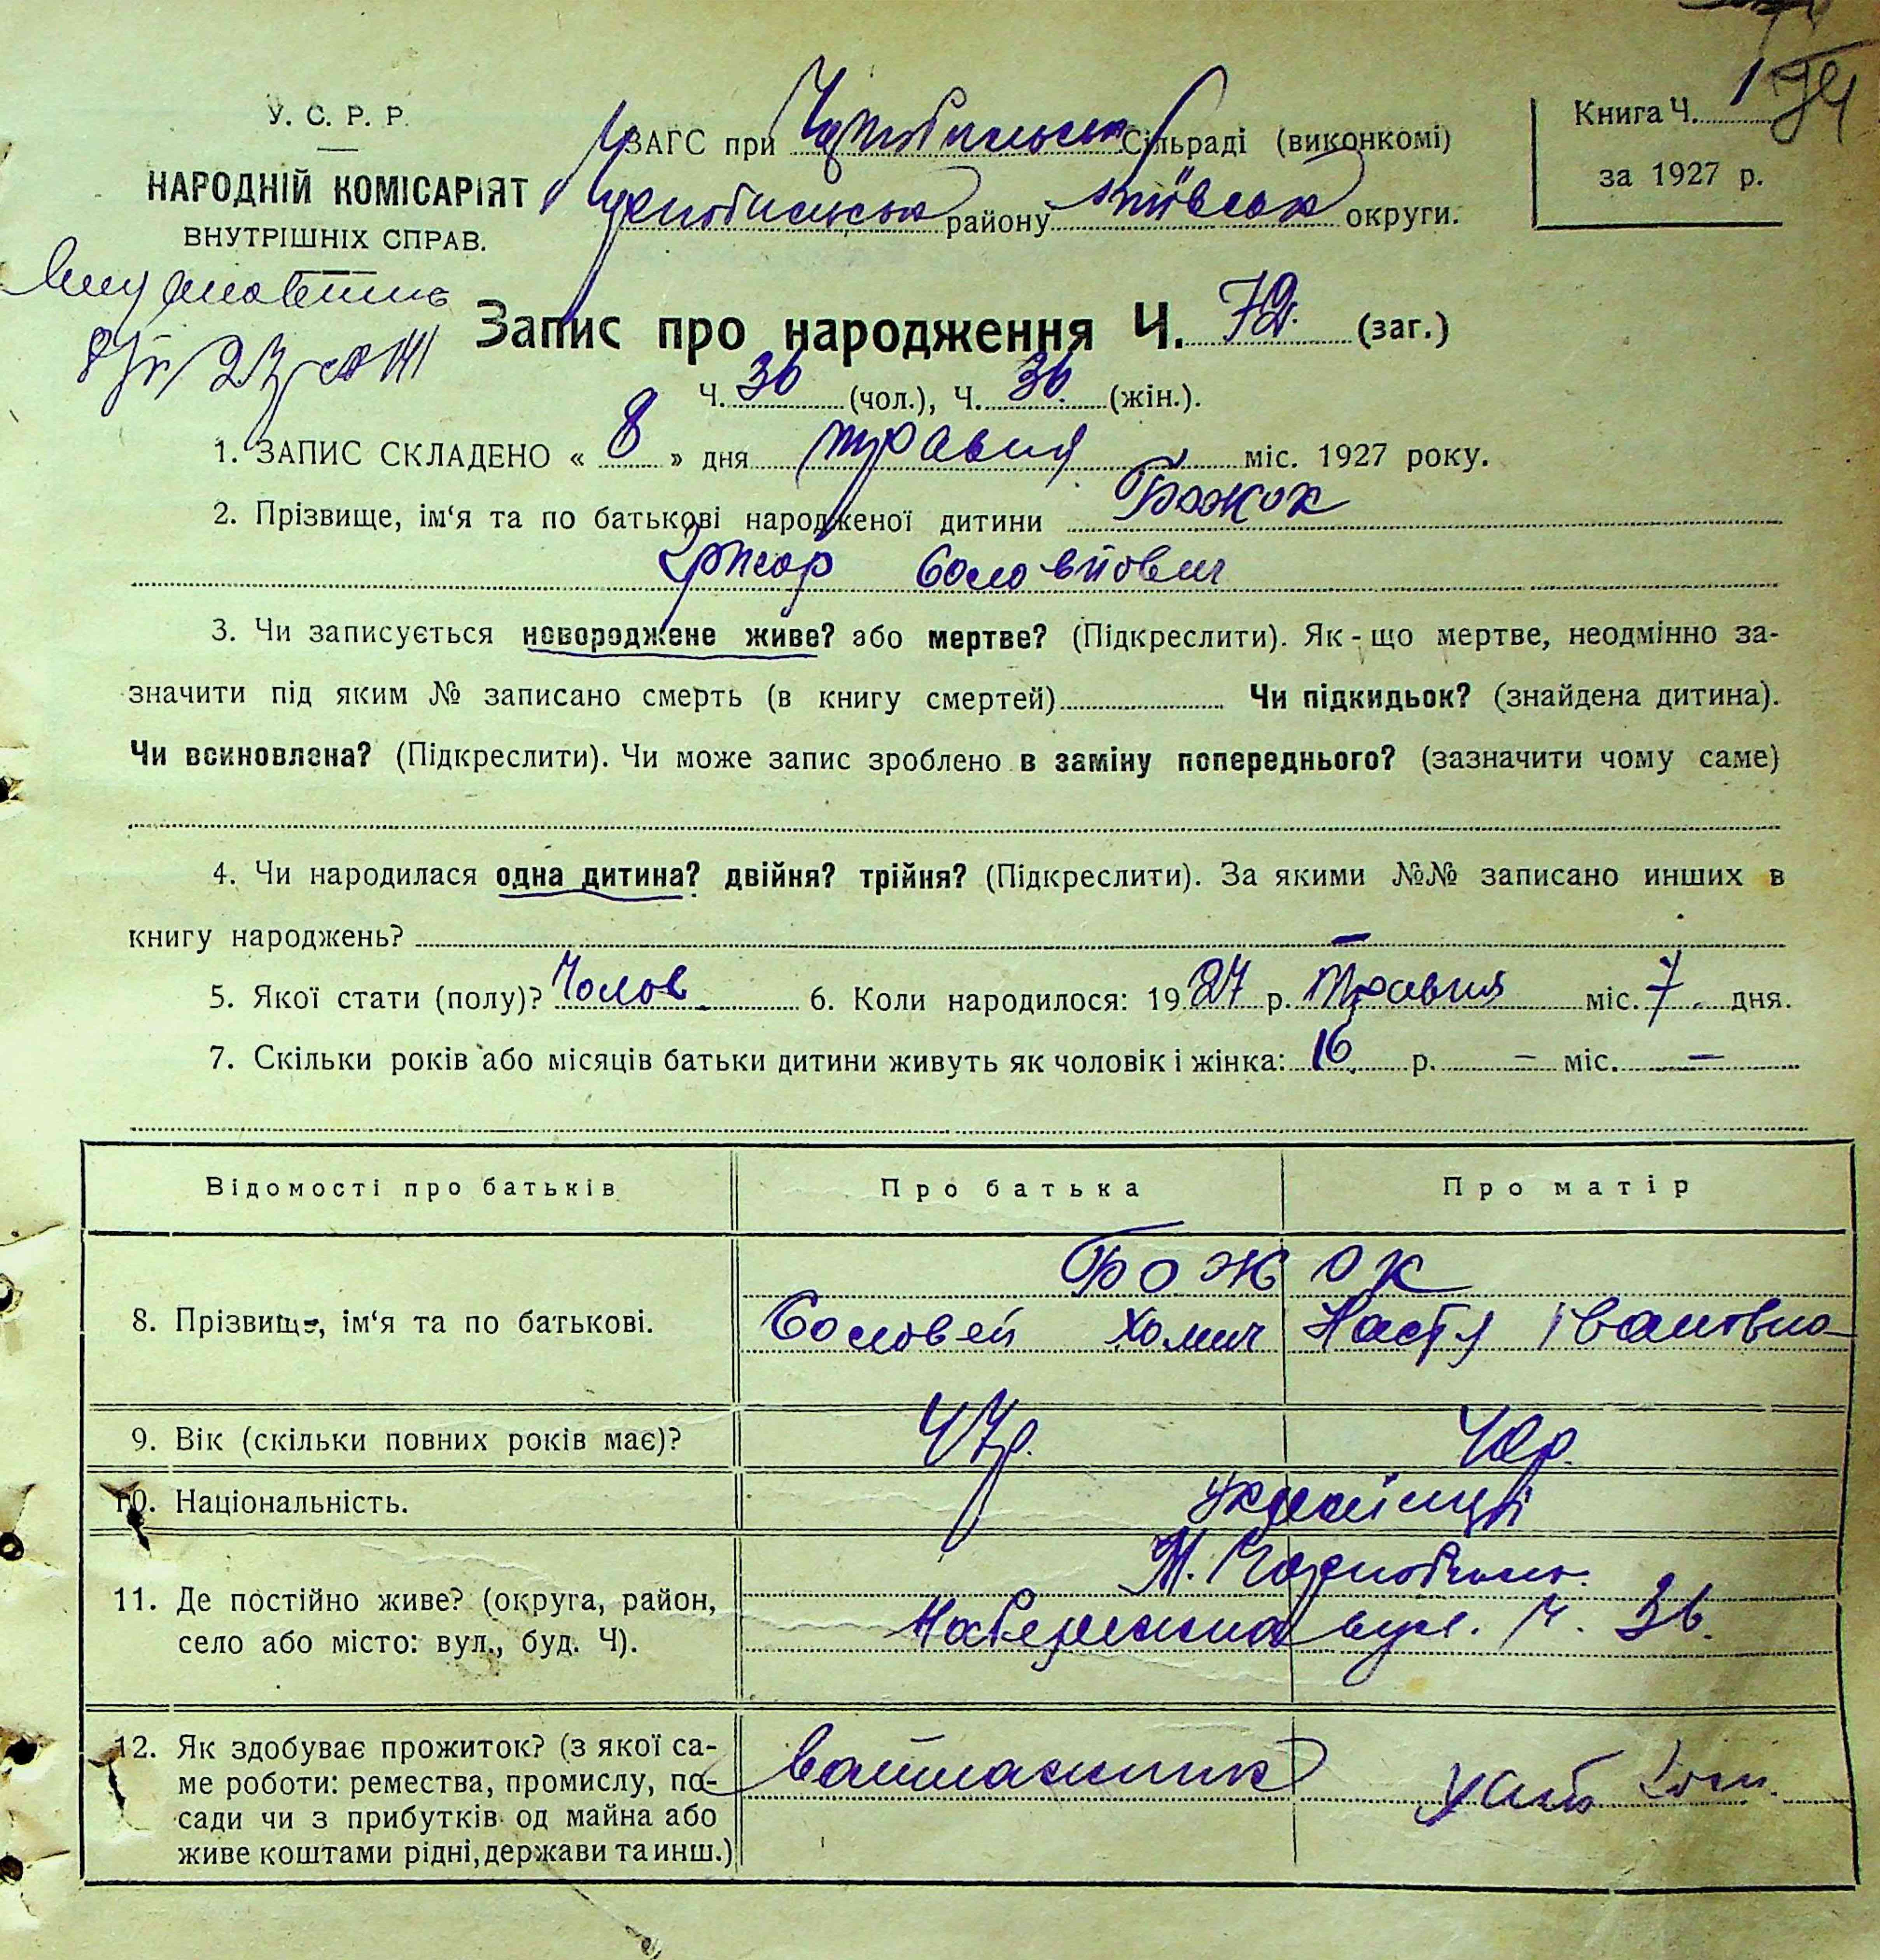 У. С. Р. Р.
НАРОДНІЙ КОМІСАРІЯТ
ВНУТРІШНІХ СПРАВ.
ЗАГС при Чорнобильськ Сільраді (виконкомі)
Чорнобильськ району Київськ округи.
Книга Ч. 1
за 1927 р.
Запис про народження Ч. 72. (заг.)
Ч. 36 (чол.), Ч. 36 (жін.).
1. ЗАПИС СКЛАДЕНО « 8 » дня травня міс. 1927 року.
2. Прізвище, ім‘я та по батькові народженої дитини Божок
Соловйович
3. Чи записується новороджене живе? або мертве? (Підкреслити). Як-що мертве, неодмінно за-
значити під яким № записано смерть (в книгу смертей) Чи підкидьок? (знайдена дитина).
Чи всиновлена? (Підкреслити). Чи може запис зроблено в заміну попереднього? (зазначити чому саме)
4. Чи народилася одна дитина? двійня? трійня? (Підкреслити). За якими №№ записано инших в
книгу народжень? —
5. Якої стати (полу)? Чолов. 6. Коли народилося: 1927 р. Травня міс. 7. дня.
7. Скільки років або місяців батьки дитини живуть як чоловік і жінка: 16 р. — міс. —
Відомості про батьків Про батька Про матір
Божок
8. Прізвище, ім‘я та по батькові. Соловей Хомич Настя Івановна
9. Вік (скільки повних років має)? 47р. 40р.
10. Національність. українці
11. Де постійно живе? (округа, район,
село або місто: вул., буд. Ч).
М. Чорнобиль.
Набережна вул. Ч. 36.
12. Як здобуває прожиток? (з якої са-
ме роботи: ремества, промислу, по-
сади чи з прибутків од майна або
живе коштами рідні, держави та инш.)